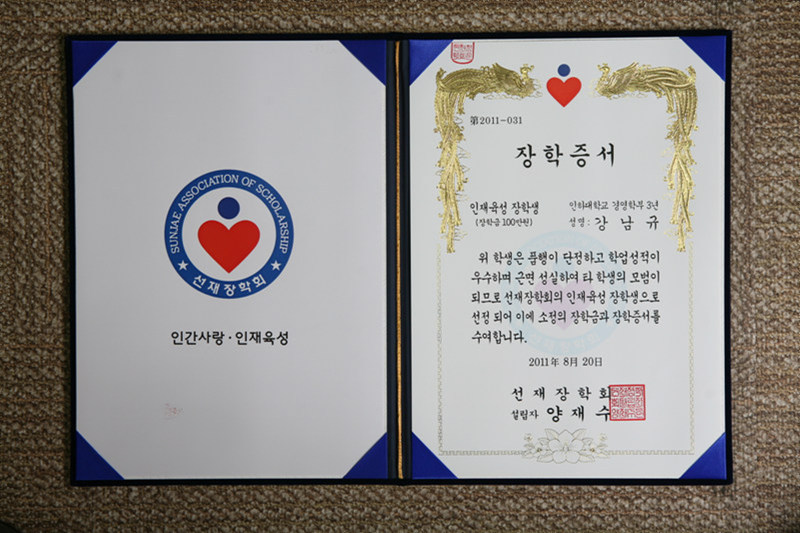 SUNJAE ASSOCIATION OF SCHOLARSHIP
★ 선재장학회 ★
인간사랑 · 인재육성
제2011-031
장학증서
인재육성 장학생
(장학금 100만원)
인하대학교 경영학부 3년
성명 : 강남규
위 학생은 품행이 단정하고 학업성적이
우수하며 근면 성실하여 타 학생의 모범이
되므로 선재장학회의 인재육성 장학생으로
선정 되어 이에 소정의 장학금과 장학증서를
수여합니다.
2011년 8월 20일
선재장학회
설립자 양재수